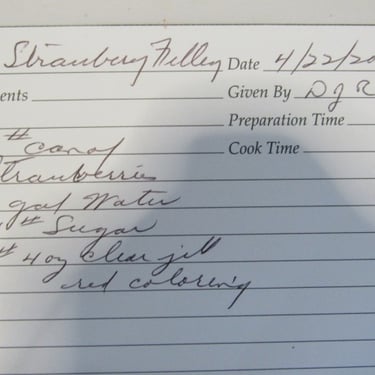 Strawbery Filley Date 4/22/20
ents Given By D J R
Preparation Time
# can of Cook Time
trawberries
gal Water
# Sugar
# 4 oz clear jell
red coloreing